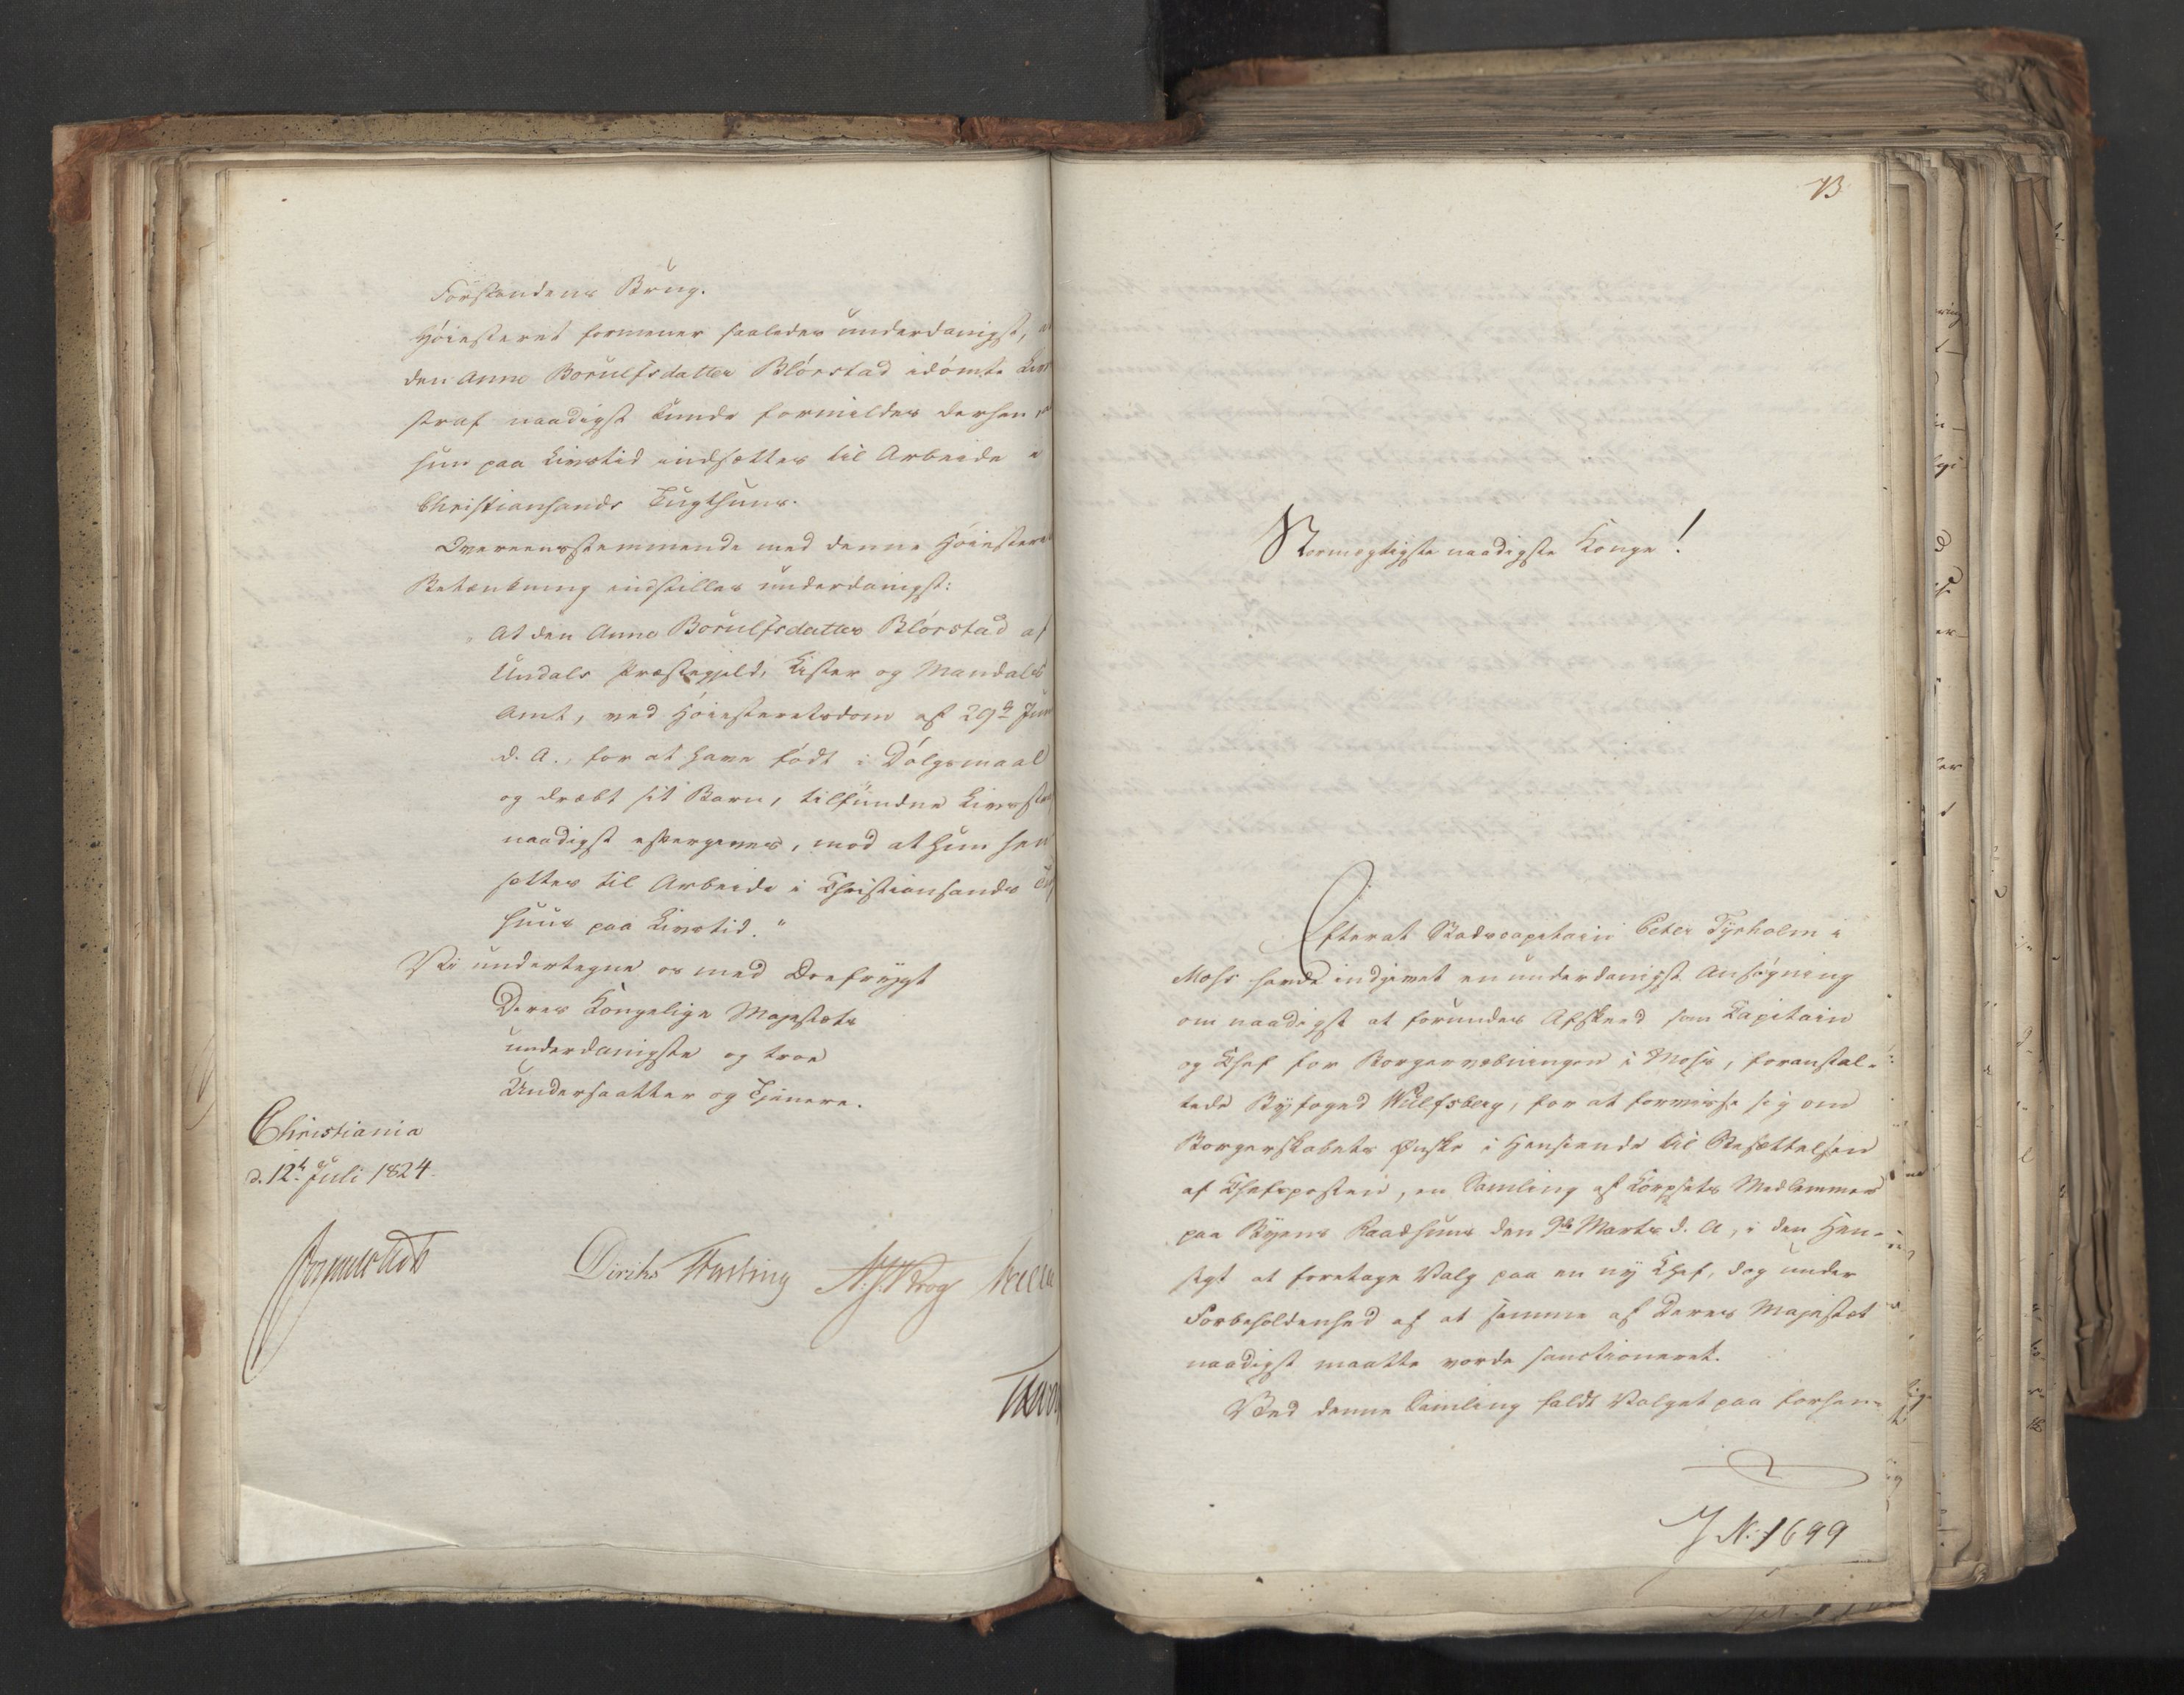 Forstandens Brug.
Høiesteret formener saaledes underdanigst, at
den Anne Borulfsdatter Blørstad idømte Livs
straf naadigst kunde formildes derhen, at
hun paa Livstid indsættes til Arbeide i
Christiansands Tugthuus.
Overeensstemmende med denne Høiesterets
Betænkning indstilles underdanigst:
"At den Anne Borulfsdatter Blørstad af
Undals Præstegjeld, Lister og Mandals
Amt, ved Høiesteretsdom af 29de Juni
d. A., for at have født i Dølgsmaal
og dræbt sit Barn, tilfundne Livsstraf
naadigst eftergives, mod at hun hen
sættes til Arbeide i Christiansands Tugt
huus paa Livstid."
Vi undertegne os med Ærefrygt
Deres Kongelige Majestæts
underdanigste og troe
Undersaatter og Tjenere.
Christiania
d. 12te Juli 1824.
Diriks N. J. Krog
73
Stormægtigste naadigste Konge!
Efterat Stadscapitain Peter Tyrholm i
Moss havde indgivet en underdanigst Ansøgning
om naadigst at forundes Afskeed som Capitain
og Chef for Borgervæbningen i Moss, foranstal-
tede Byfoged Wulfsberg, for at forvisse sig om
Borgerskabets Ønske i Henseende til Besættelsen
af Chefsposten, en Samling af Korpsets Medlemmer
paa Byens Raadhuus den 9de Marts d. A, i den Hen-
sigt at foretage Valg paa en ny Chef, dog under
Forbeholdenhed af at samme af Deres Majestæt
naadigst maatte vorde sanctioneret.
Ved denne Samling faldt Valget paa forhen-
J N: 1699